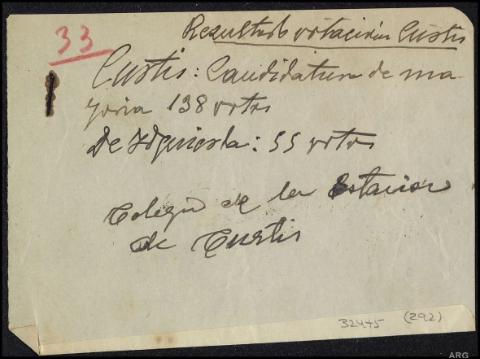 33
Resultado votación Curtis
Curtis: Candidatura de ma-
yoria 138 votos
De Izquierda: 55 votos
Colegio de la Estacion
de Curtis
32445 (292)
ARG